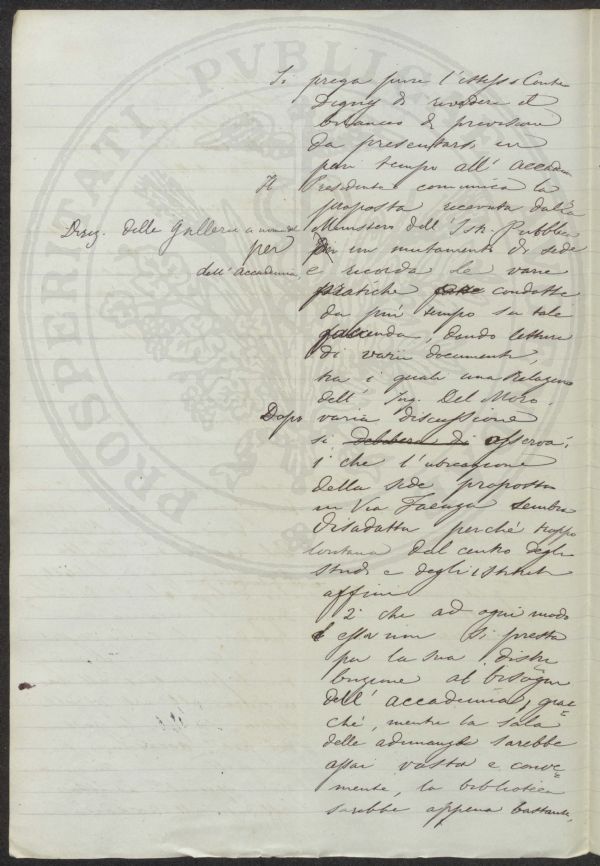 Si prega pure l'istesso Conte
Digny di rivedere il
bilancio di previsione
da presentarsi in
pari tempo all' accademia
Il Presidente comunica la
proposta ricevuta dalla
Direz. delle Gallerie a nome del Ministero dell' Istr. Pubblica
per un mutamento di sede
dell' Accademia, e ricorda le varie
pratiche fatte condotte
da più tempo su tale
faccenda, dando lettura
di varii documenti,
tra i quali una Relazione
dell' Ing. Del Moro.
Dopo varia discussione
si delibera di osserva,
1 che l'ubicazione
della sede proposta
in Via Faenza sembra
disadatta perché troppo
lontana dal centro degli
studi e degli istituti
affini
2. che ad ogni modo
essa non si presta
per la sua distri
buzione al bisogno
dell' accademia, giac=
ché, mentre la sala
delle adunanze sarebbe
assai vasta e conve=
niente, la biblioteca
sarebbe appena bastante,
PROSPERITATI PVBLICAE